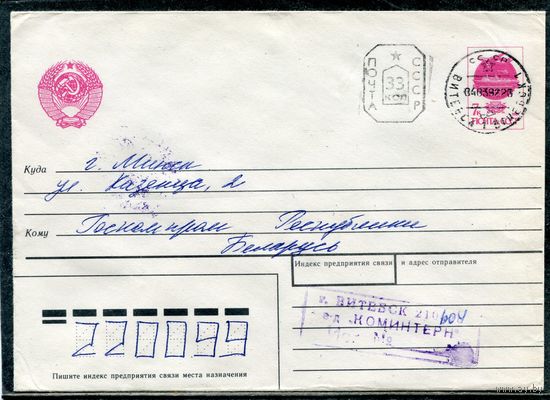 ПОЧТА
СССР
33
коп
СССР
040392 20
ВИТЕБСК
7к
ПОЧТА
Куда
г. Минск
ул. Казенца, 2
Кому
Госкомпром Республики
Беларусь
Индекс предприятия связи и адрес отправителя
г. ВИТЕБСК 210604
"КОМИНТЕРН"
№
220099
Пишите индекс предприятия связи места назначения